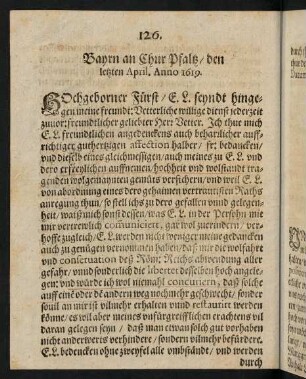 126.
Bayrn an Chur Pfaltz / den
letzten April. Anno 1619.
HOchgeborner Fürst / E. L. seyndt hinge-
gen meine freundt: Vetterliche willige dienst jederzeit
zuvor: freundtlicher geliebter Herr Vetter. Ich thue mich
E. L. freundtlichen angedenckens auch beharrlicher auff-
richtiger guthertzigen affection halber / fr: bedancken /
vnd dieselb eines gleichmessigen / auch meines zu E. L. vnd
dero ersprießlichen auffnemen, hochheit vnd wolstandt tra-
genden wolgemannen gemüts versichern / vnd weil E. L.
von abordnung eines dero gehaimen vertrautisten Raths
anregung thun / so stell ichs zu dero gefallen vnnd gelegen-
heit / waiß mich sonst dessen / was E. L. in der Person mie
mir vertrewlich comuniciert, gar wol zuerindern / ver-
hoffe zugleich / E. L. werden nicht weniger meine gedancken
auch zu genügen vernommen haben / daß mir die wolfahrt
vnd conservation deß Röm: Reichs abwendung aller
gefahr / vnnd sonderlich die libertet desselben hoch angele-
gen; vnd würde ich wol niemahl concurriern, daß solche
auff eine oder die andern weg noch mehr geschwecht / sonder
souil an mir ist vilmehr erhalten vnnd restauriert werden
köne / es wil aber meines vnfürgreifflichen erachtens vil
daran gelegen seyn / daß man etwan solch gut vorhaben
nicht anderwerts verhindere / sondern vilmehr befürdere.
E. L. bedencken ohne zweyfel alle vmbständt / vnd werden
durch